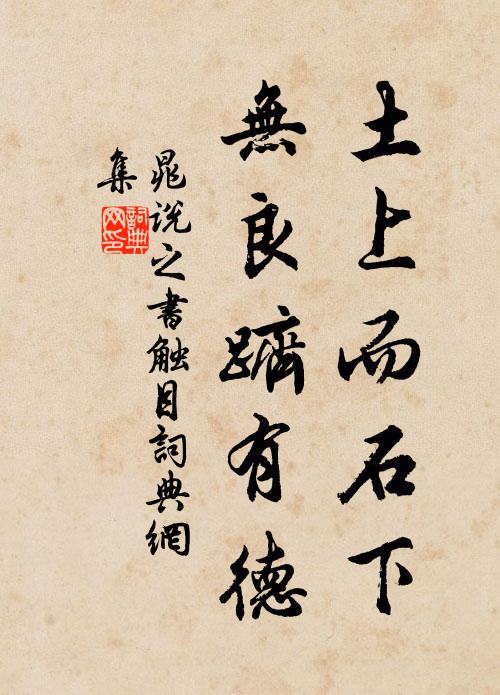 土上而石下
無良躋有德
晁说之書觸目詞典網
集
詞典网印